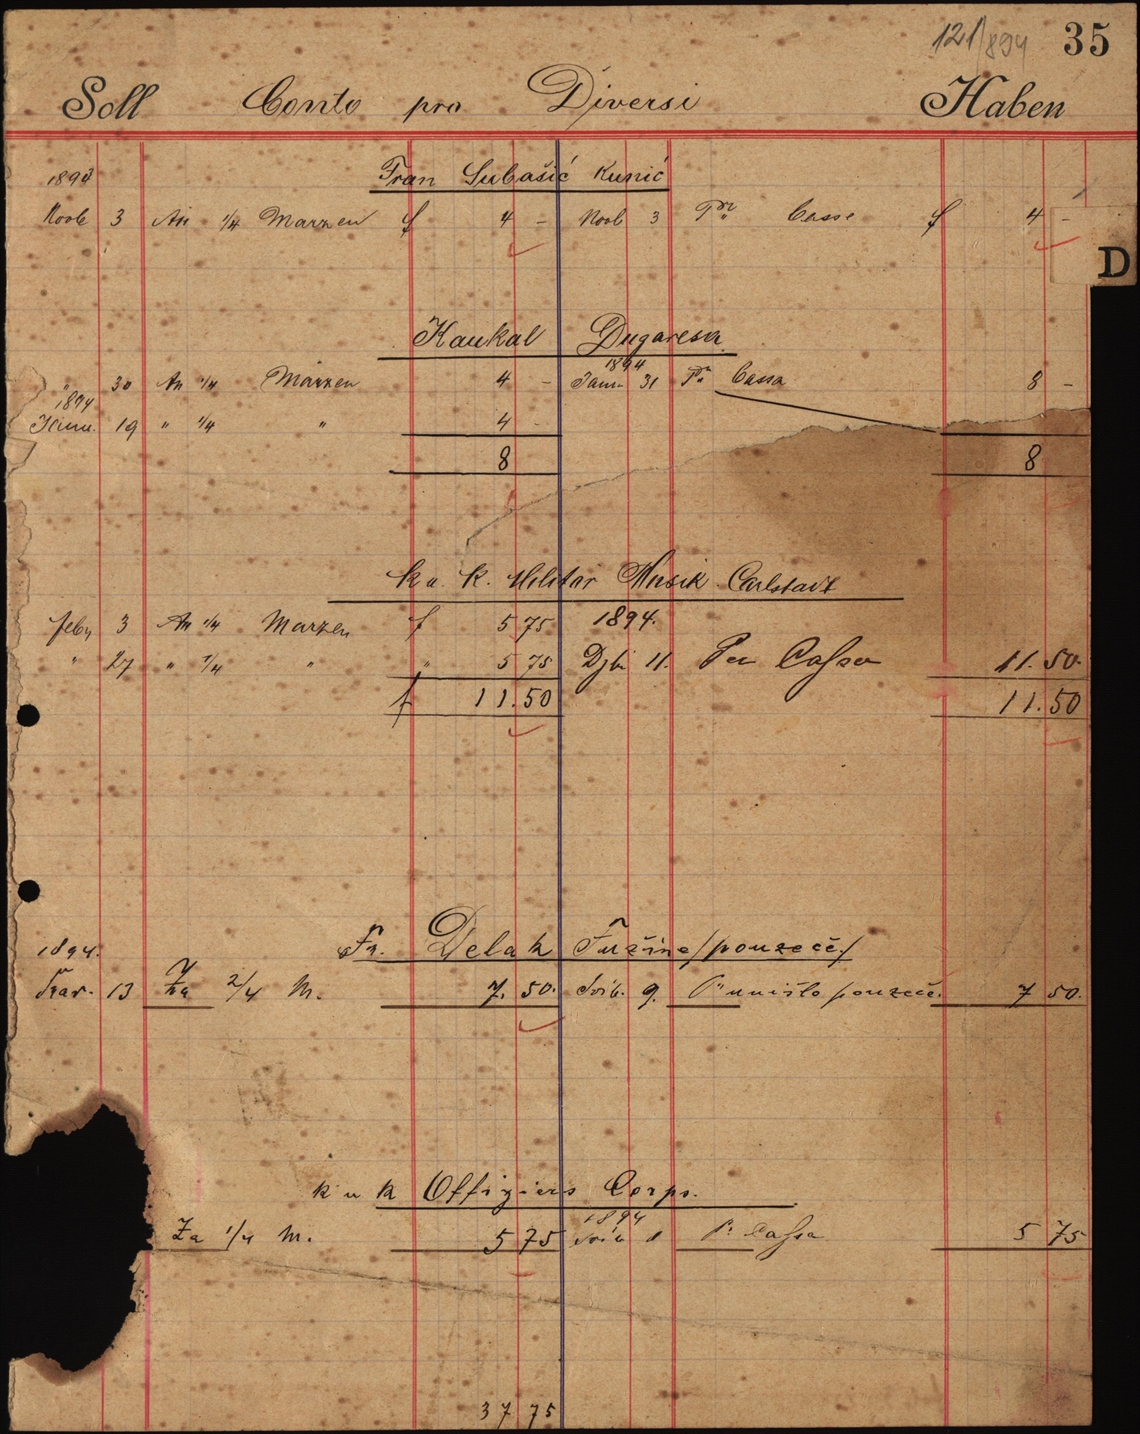 121/894 35
Soll Conto pro Diversi Haben
D
Fran Subašić Kunić
1894
Novb 3 An 1/4 Marzen f 4 - Novb 3 Pr Casse f 4 -
Kaukal Dugaresa
" 30 An 1/4 Marzen 4 - 1894 Jann. 31 Pr Cassa 8 -
1894
Jänn. 19 " 1/4 " 4 -
8 8
k u. k. Militär Musik Carlstadt
feby 3 An 1/4 Marzen f 5 75 1894.
" 27 " 1/4 " " 5 75 11. Per Cassa 11.50.
f 11.50 11.50
Fr. Delak Fužine /pouzeće/
1894.
Trav. 13 Za 2/4 M. 7. 50. Svib. 9. Pr pouzeće. 7 50.
k u k Offiziers Corps.
Za 1/4 M. 5 75 1894 Svib P. Cassa 5 75
37 75